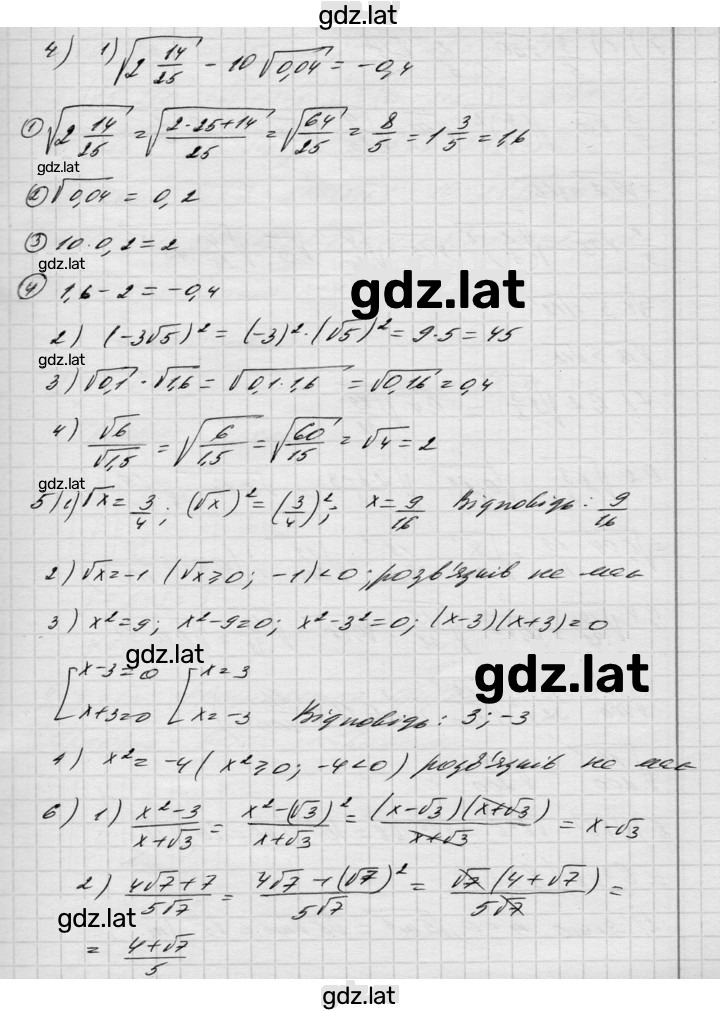 gdz.lat
4) 1) √(2 14/25) - 10 √0,04 = -0,4
① √(2 14/25) = √((2·25+14)/25) = √(64/25) = 8/5 = 1 3/5 = 1,6
gdz.lat
② √0,04 = 0,2
③ 10·0,2 = 2
gdz.lat
④ 1,6 - 2 = -0,4
gdz.lat
2) (-3√5)² = (-3)²·(√5)² = 9·5 = 45
gdz.lat
3) √0,1 · √1,6 = √(0,1·1,6) = √0,16 = 0,4
4) √6/√1,5 = √(6/1,5) = √(60/15) = √4 = 2
gdz.lat
5) 1) √x = 3/4; (√x)² = (3/4)²; x = 9/16 Відповідь: 9/16
2) √x = -1 (√x ≥ 0; -1) < 0; розв'язків не має
3) x² = 9; x² - 9 = 0; x² - 3² = 0; (x-3)(x+3) = 0
gdz.lat
gdz.lat
[x-3=0 [x=3
[x+3=0 [x=-3 Відповідь: 3; -3
4) x² = -4 (x² ≥ 0; -4 < 0) розв'язків не має
6) 1) (x²-3)/(x+√3) = (x²-(√3)²)/(x+√3) = ((x-√3)(x+√3))/(x+√3) = x-√3
2) (4√7+7)/(5√7) = (4√7+(√7)²)/(5√7) = (√7(4+√7))/(5√7) =
gdz.lat
= (4+√7)/5
gdz.lat